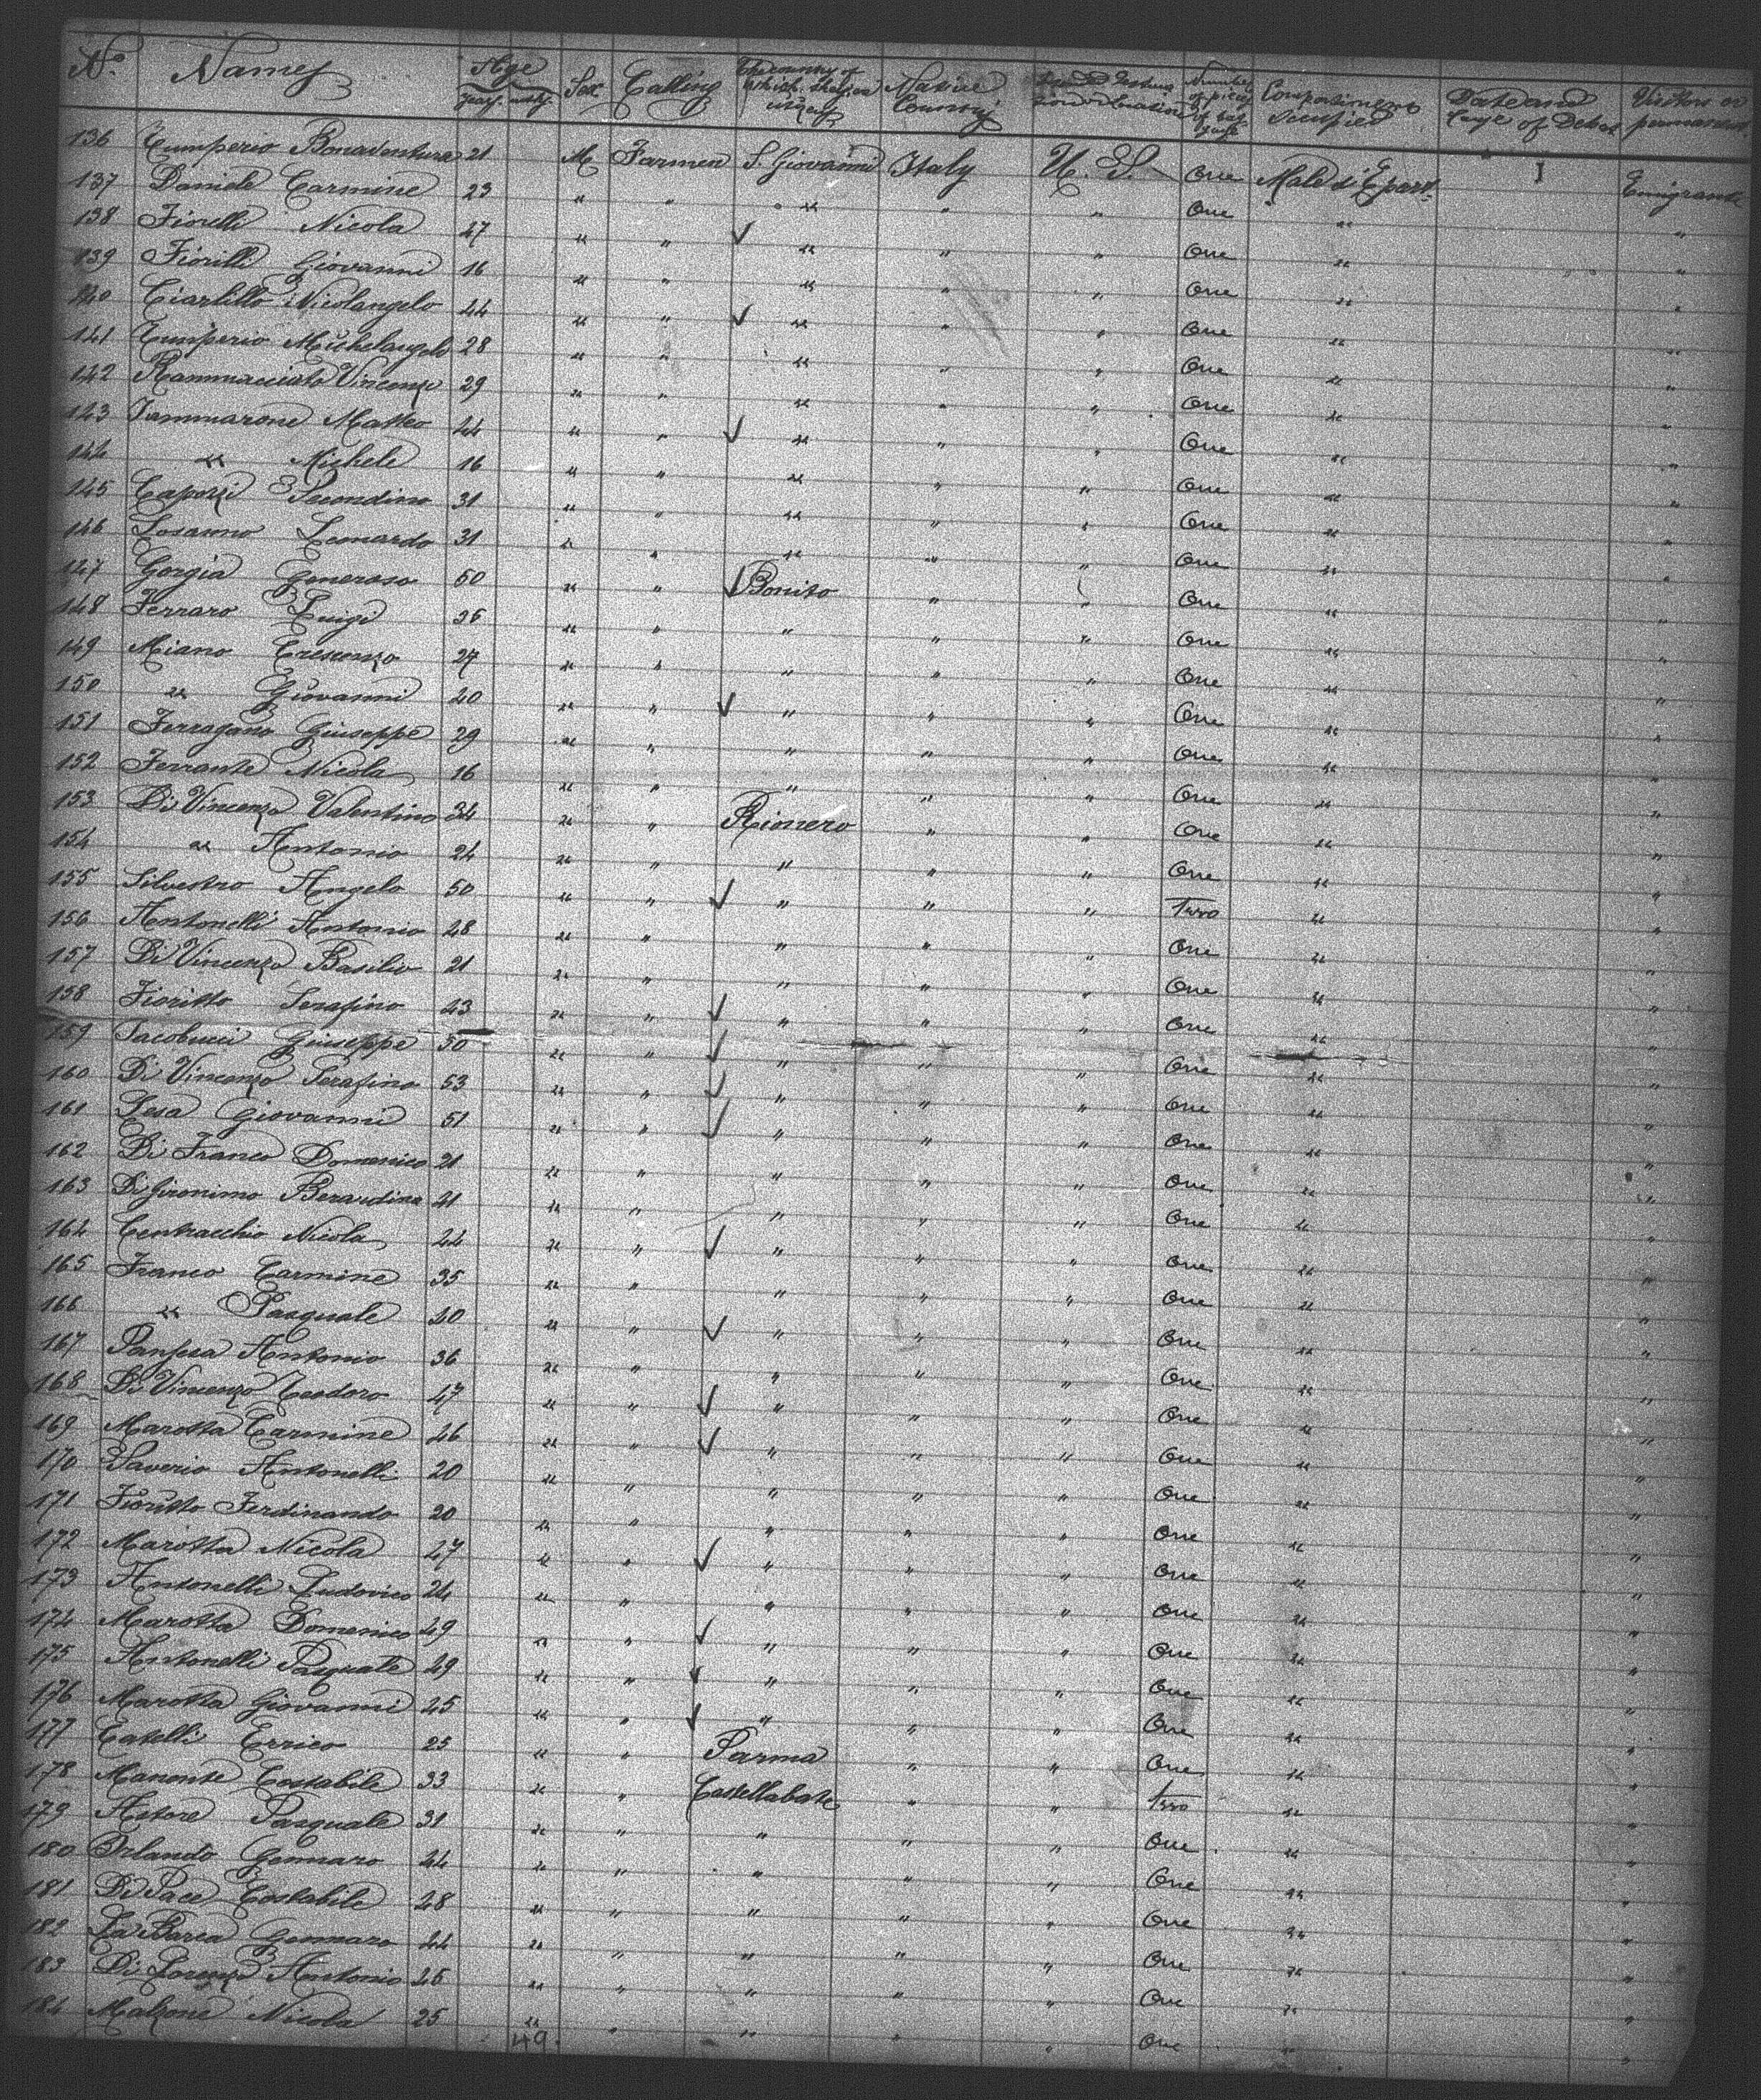 No. Names Age years mths. Sex Calling The country of which they are Native Country Number of pieces of baggage Compartment occupied Date and Cause of Death
136 Cimperio Bonaventura 21 M Farmer S. Giovanni Italy U. S. One Male Emigrant
137 Daniele Carmine 23 " " " " " One " "
138 Fiorelli Nicola 47 " " ✓ " " " One " "
139 Fiorilli Giovanni 16 " " " " " One " "
140 Ciarlillo Nicolangelo 44 " " ✓ " " " One " "
141 Cimperio Michelangelo 28 " " " " " One " "
142 Rammacciato Vincenzo 29 " " " " " One " "
143 Iammarone Matteo 44 " " ✓ " " " One " "
144 " Michele 16 " " " " " One " "
145 Capozzi Secondino 31 " " " " " One " "
146 Losanno Leonardo 31 " " " " " One " "
147 Gorgia Generoso 50 " " ✓ Bonito " " One " "
148 Ferraro Luigi 36 " " " " " One " "
149 Miano Crescenzo 27 " " " " " One " "
150 " Giovanni 40 " " ✓ " " " One " "
151 Ferragano Giuseppe 29 " " " " " One " "
152 Ferrante Nicola 16 " " " " " One " "
153 Di Vincenzo Valentino 34 " " Rionero " " One " "
154 " Antonio 24 " " " " " One " "
155 Silvestro Angelo 50 " " ✓ " " " Two " "
156 Antonelli Antonio 28 " " " " " One " "
157 Di Vincenzo Basilio 21 " " " " " One " "
158 Fioritto Serafino 43 " " ✓ " " " One " "
159 Iacobucci Giuseppe 50 " " ✓ " " " One " "
160 Di Vincenzo Serafino 53 " " ✓ " " " One " "
161 Lesa Giovanni 51 " " ✓ " " " One " "
162 Di Franco Domenico 21 " " " " " One " "
163 Di Gironimo Berardino 21 " " " " " One " "
164 Centracchio Nicola 44 " " ✓ " " " One " "
165 Franco Carmine 35 " " " " " One " "
166 " Pasquale 40 " " ✓ " " " One " "
167 Antonio 36 " " " " " One " "
168 Di Vincenzo Teodoro 47 " " ✓ " " " One " "
169 Marotta Carmine 46 " " ✓ " " " One " "
170 Saverio Antonelli 20 " " " " " One " "
171 Fioritto Ferdinando 20 " " " " " One " "
172 Marotta Nicola 47 " " ✓ " " " One " "
173 Antonelli Ludovico 24 " " " " " One " "
174 Marotta Domenico 49 " " ✓ " " " One " "
175 Antonelli Pasquale 49 " " ✓ " " " One " "
176 Marotta Giovanni 45 " " ✓ " " " One " "
177 Catelli Errico 25 " " Parma " " One " "
178 Manente Costabile 33 " " Castellabate " " Two " "
179 Astore Pasquale 31 " " " " " One " "
180 Orlando Gennaro 44 " " " " " One " "
181 Di Pace Costabile 28 " " " " " One " "
182 La Barca Gennaro 44 " " " " " One " "
183 Di Lorenzo Antonio 26 " " " " " One " "
184 Malzone Nicola 25 " " " " " One " "
49.